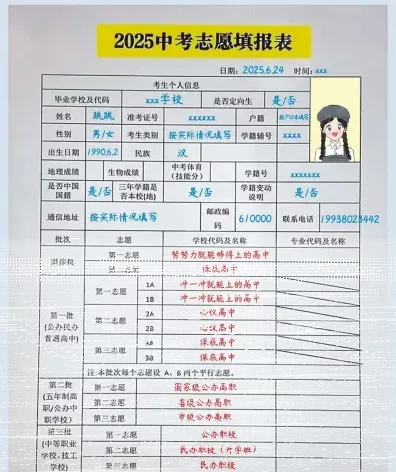 2025中考志愿填报表
日期: 2025.6.24 时间: xxx
考生个人信息
毕业学校及代码 xxx学校 是否定向生 是/否
姓名 跳跳 准考证号 xxxxxx 户籍 按户口本填写
性别 男/女 考生类别 按实际情况填写 学籍辅号 xxxx
出生日期 1990.6.2 民族 汉
地理成绩 生物成绩 中考体育(技能分) 学籍号 xxxxxxx
是否中国国籍 是/否 三年学籍是否本校(地) 是/否 学籍变动说明 是/否
通信地址 按实际情况填写 邮政编码 610000 联系电话 19938023442
批次 志愿 学校代码及名称 专业代码及名称
第一志愿 努努力就能够得上的高中
第二志愿 保底高中
第一批(公办民办普通高中)
第一志愿 1A 冲一冲就能上的高中
1B 冲一冲就能上的高中
第二志愿 2A 心仪高中
2B 心仪高中
第三志愿 3A 保底高中
3B 保底高中
注:本批次每个志愿设 A、B 两个平行志愿。
第二批(五年制高职/公办中职学校)
第一志愿 国家级公办高职
第二志愿 省级公办高职
第三志愿 市级公办高职
第三批(中等职业学校、技工学校)
第一志愿 公办职校
第二志愿 民办职校(升学班)
第三志愿 民办职校